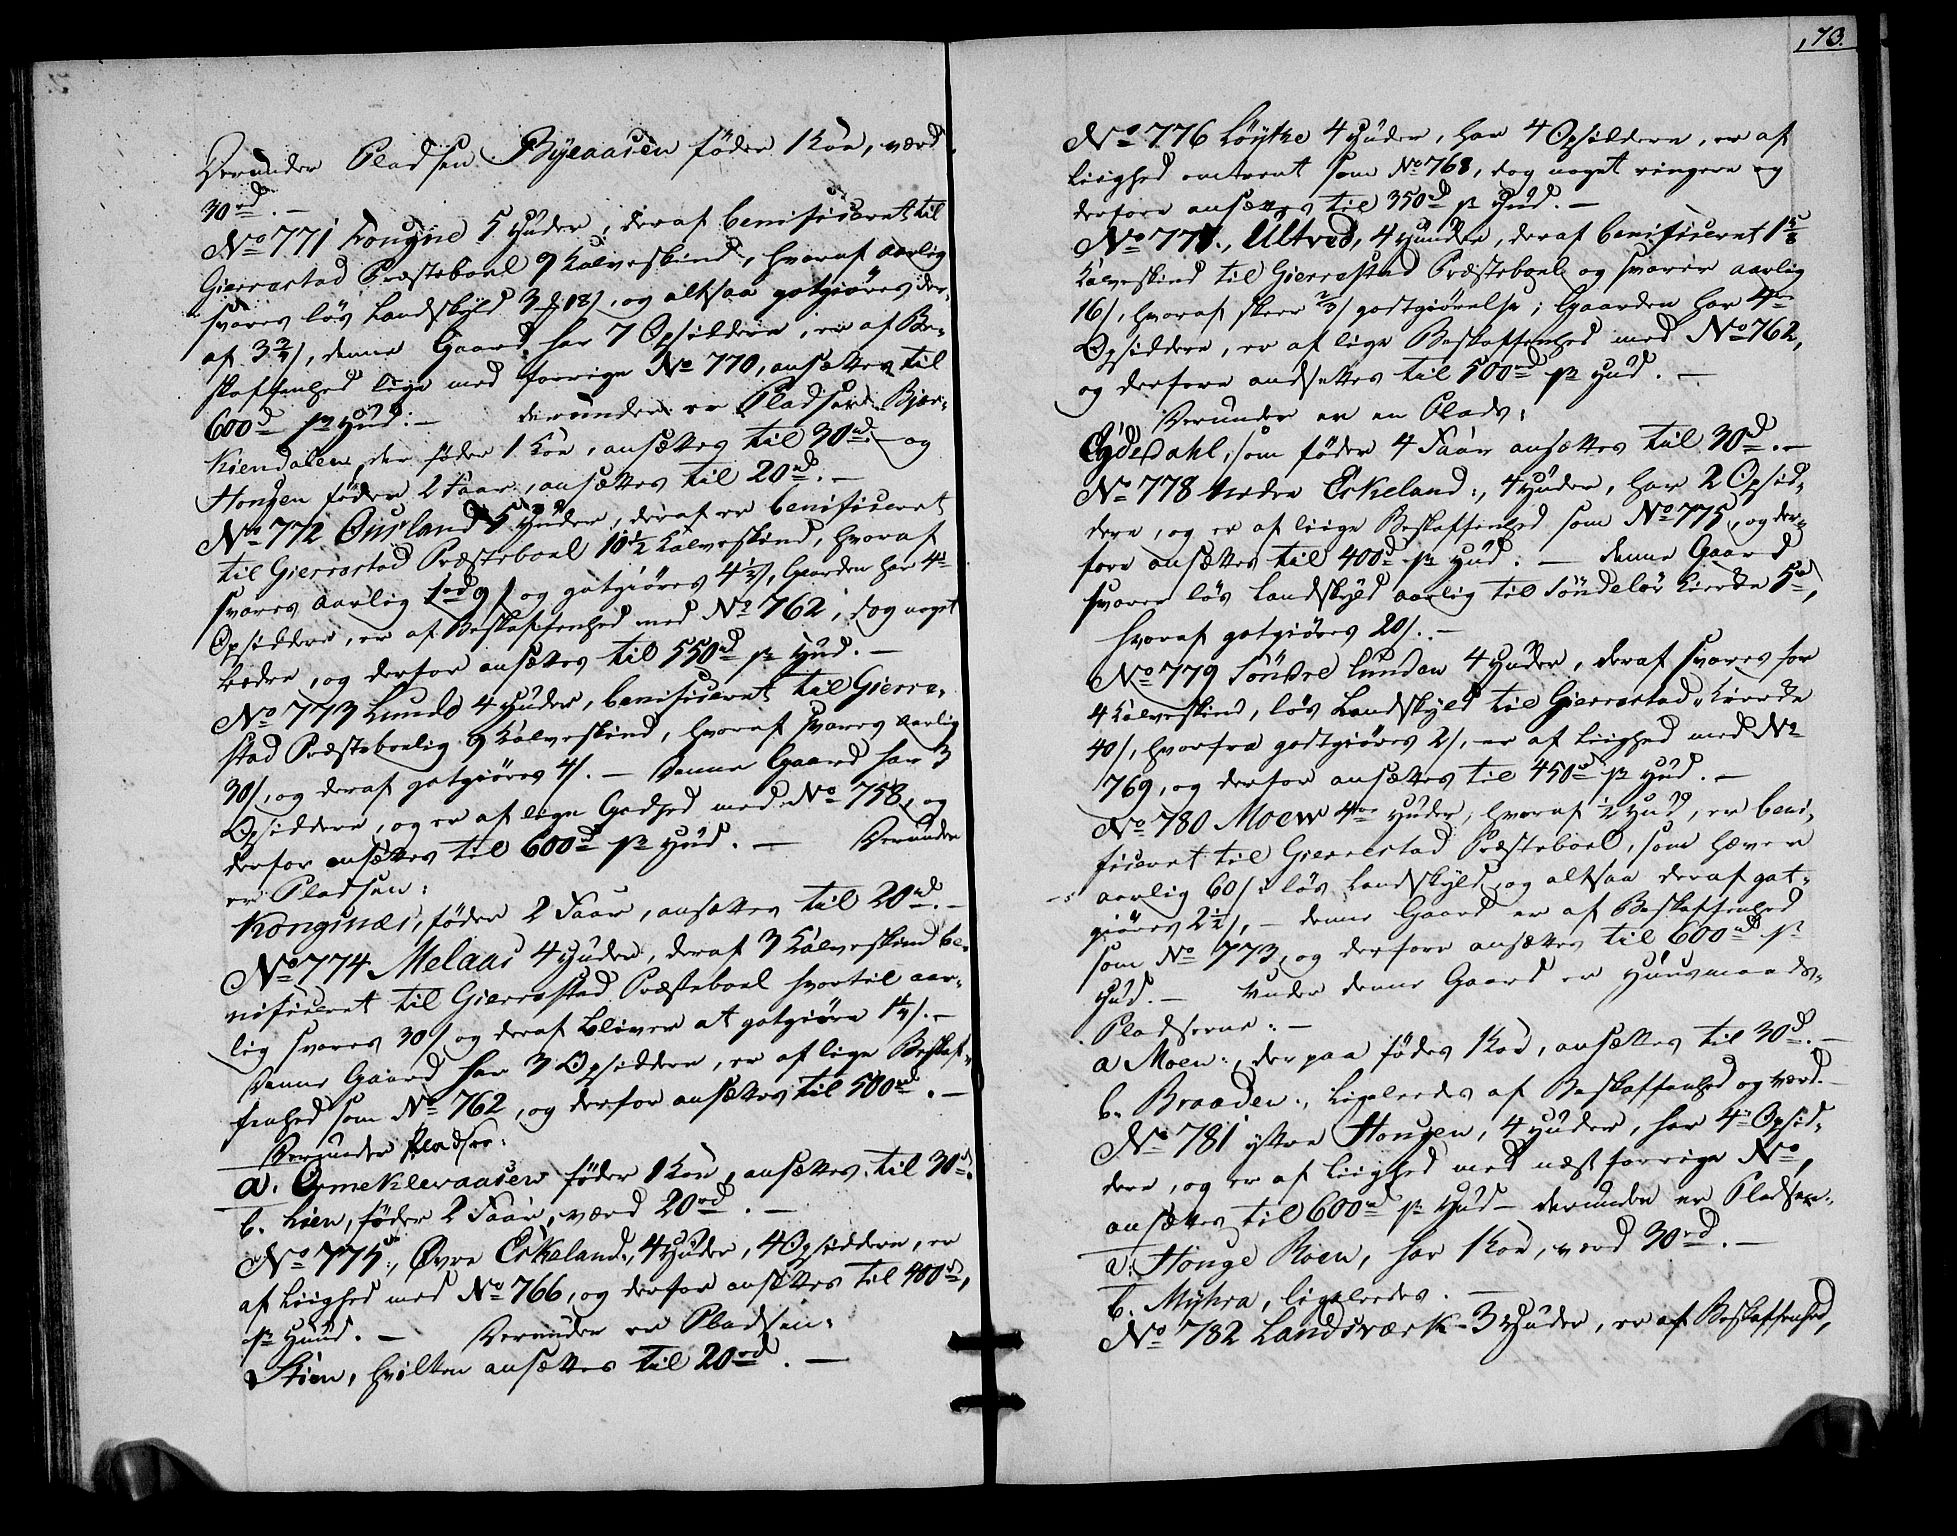 Derunder Pladsen Byeaasen føder 1 Koe, værd
30rd. –
No 771 Fougne 5 Huder, deraf benificeret til
Gierrestad Præsteboel 9 Kalveskind, hvoraf aarlig
svares løs Landskyld 3 18/, og altsaa gotgiøres der-
af 3¾/, denne Gaard har 7 Opsiddere, er af Be-
skaffenhed lige med forrige No 770, ansættes til
600d pr Hud. – derunder er Pladsene Bjør-
Kiendalen, der føder 1 Koe, ansættes til 30rd. – og
Hougen føder 2 Faar, ansættes til 20rd. –
No 772 Ousland 5 Huder, deraf er benificeret
til Gierrestad Præsteboel 10½ Kalveskind, hvoraf
svares aarlig 1rd 9/ og gotgiøres 4½/, Gaarden har 4re
Opsiddere, er af Beskaffenhed med No 762, dog noget
bedre, og derfor ansættes til 550rd pr Hud. –
No 773 Lunde 4 Huder, benificeret til Gierre-
stad Præstebolig 9 Kalveskind, hvoraf svares aarlig
30/, og deraf gotgiøres 4/. – Denne Gaard har 3
Opsiddere, og er af lige Godhed med No 758, og
derfor ansættes til 600d pr Hud. – Derunder
er Pladsen:
Konginæs, føder 2 Faar, ansættes til 20rd. –
No 774 Melaas 4 Huder, deraf 3 Kalveskind be-
nificeret til Gierrestad Præsteboel hvortil aar-
lig svares 30/ og deraf bliver at gotgiøre 1¼/. –
Denne Gaard har 3 Opsiddere, er af lige Beskaf-
fenhed som No 762, og derfor ansættes til 500rd. –
Derunder Pladser:
a. Ormekleraasen føder 1 Koe, ansættes til 30rd.
b. Lien, føder 2 Faar, værd 20rd. –
No 775., Øvre Eskeland., 4 Huder, 4 Opsiddere, er
af Liighed med No 766, og derfor ansættes til 400rd,
pr Huud. – Derunder er Pladsen:
Stien, hvilken ansættes til 20rd. –
173.
No 776 Løyte 4 Huder, har 4 Opsiddere, er af
Liighed omtrent som No 768, dog noget ringere og
derfore ansættes til 350d pr Hud. –
No 777., Ultved, 4 Hunder, deraf benificeret 1⅝
Kalveskind til Gierrestad Præsteboel og svarer aarlig
16/, hvoraf skeer ⅔/ godtgiørelse; Gaarden har 4re
Opsiddere, er af lige Beskaffenhed med No 762,
og derfore andsettes til 500rd pr Hud. –
Derunder er en Plads:
Eydedahl, som føder 4 Faar ansættes til 30d. –
No 778 Nedre Eskeland., 4 Huder, har 2 Opsid-
dere, og er af liige Beskaffenhed som No 775, og der-
fore ansættes til 400d pr Hud. – denne Gaard
svarer løs Landskyld aarlig til Søndeløv Kierke 5rd,
hvoraf gotgiøres 20/. –
No 779 Søndre Lunden 4 Huder, deraf svares for
4 Kalveskind, løs Landskyld til Gierrestad Kierke
40/, hvorfra godtgiøres 2/, er af Liighed med No
769, og derfor ansættes til 450rd pr Hud. –
No 780 Moen 4re Huder, hvoraf ½ Hud, er beni-
ficeret til Gierrestad Præsteboel, som hæver
aarlig 60/ i løs Landskyld, og altsaa deraf got-
giøres 2½/, – denne Gaard er af Beskaffenhed
som No 773, og derfore ansættes til 600rd pr
Hud. – Under denne Gaard er Huusmands-
Pladserne: –
a Moen:, der paa fødes 1 Koe, ansættes til 30d. –
b. Braaden., ligeledes af Beskaffenhed og værd. –
No 781 ystre Hougen, 4 Huder, har 4re Opsid-
dere, og er af Liighed med næst forrige No,
ansættes til 600rd pr Hud – derunder er Pladsen:
a. Houge Roen, har 1 Koe, værd 30rd. –
b. Myhra, ligeledes. –
No 782 Landsværk 3 Huder, er af Beskaffenhed,